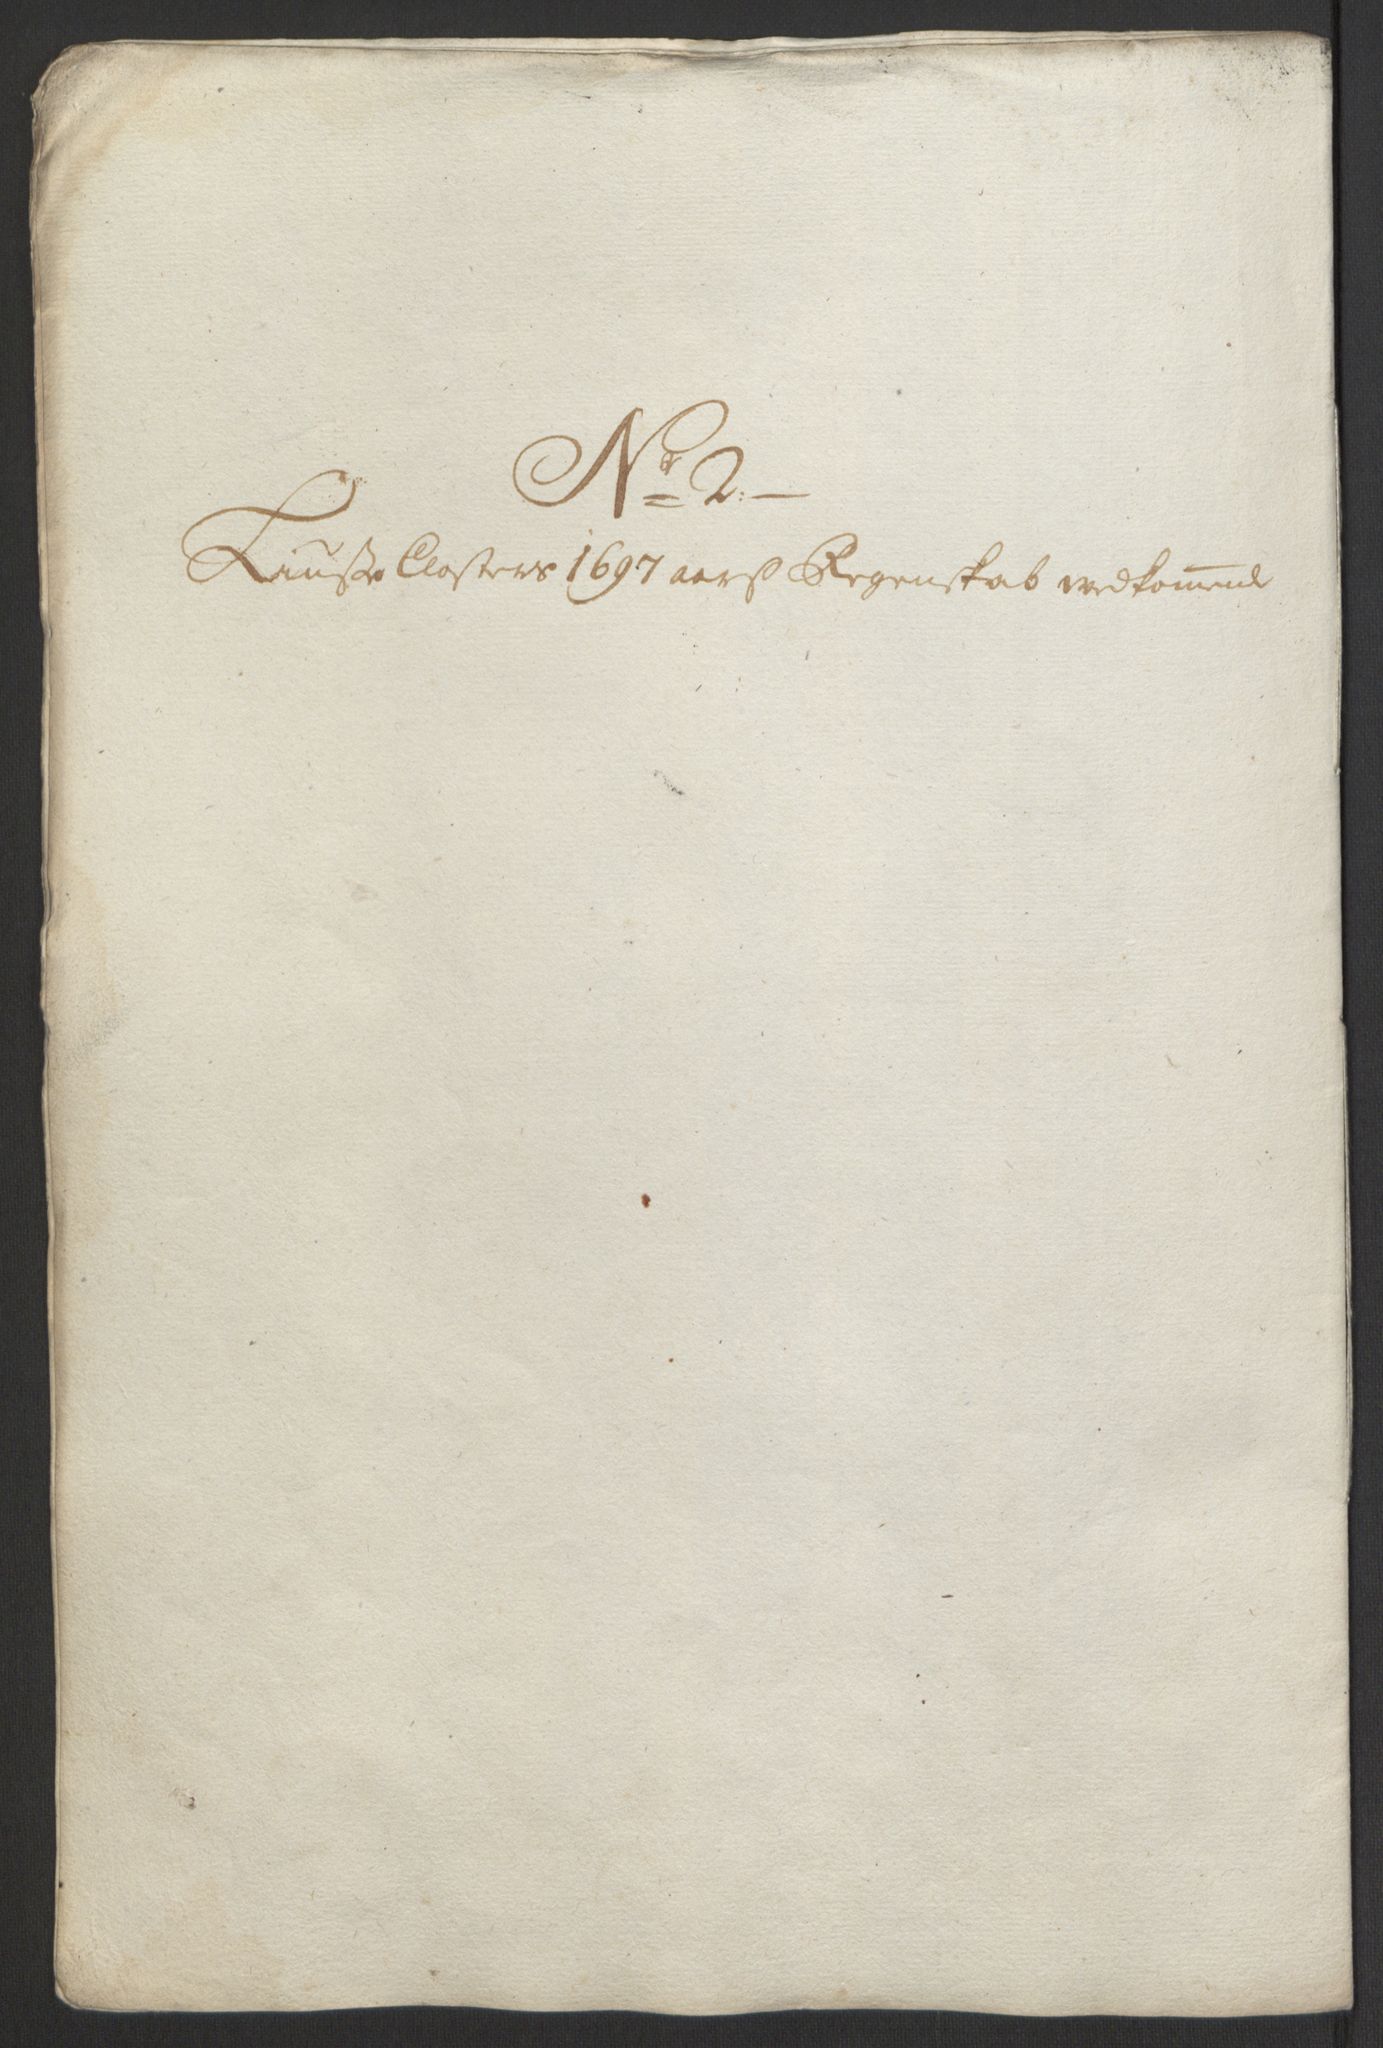 Nr 2.
Liusse Closters 1697 aarß Regenskab vedkom̄ende